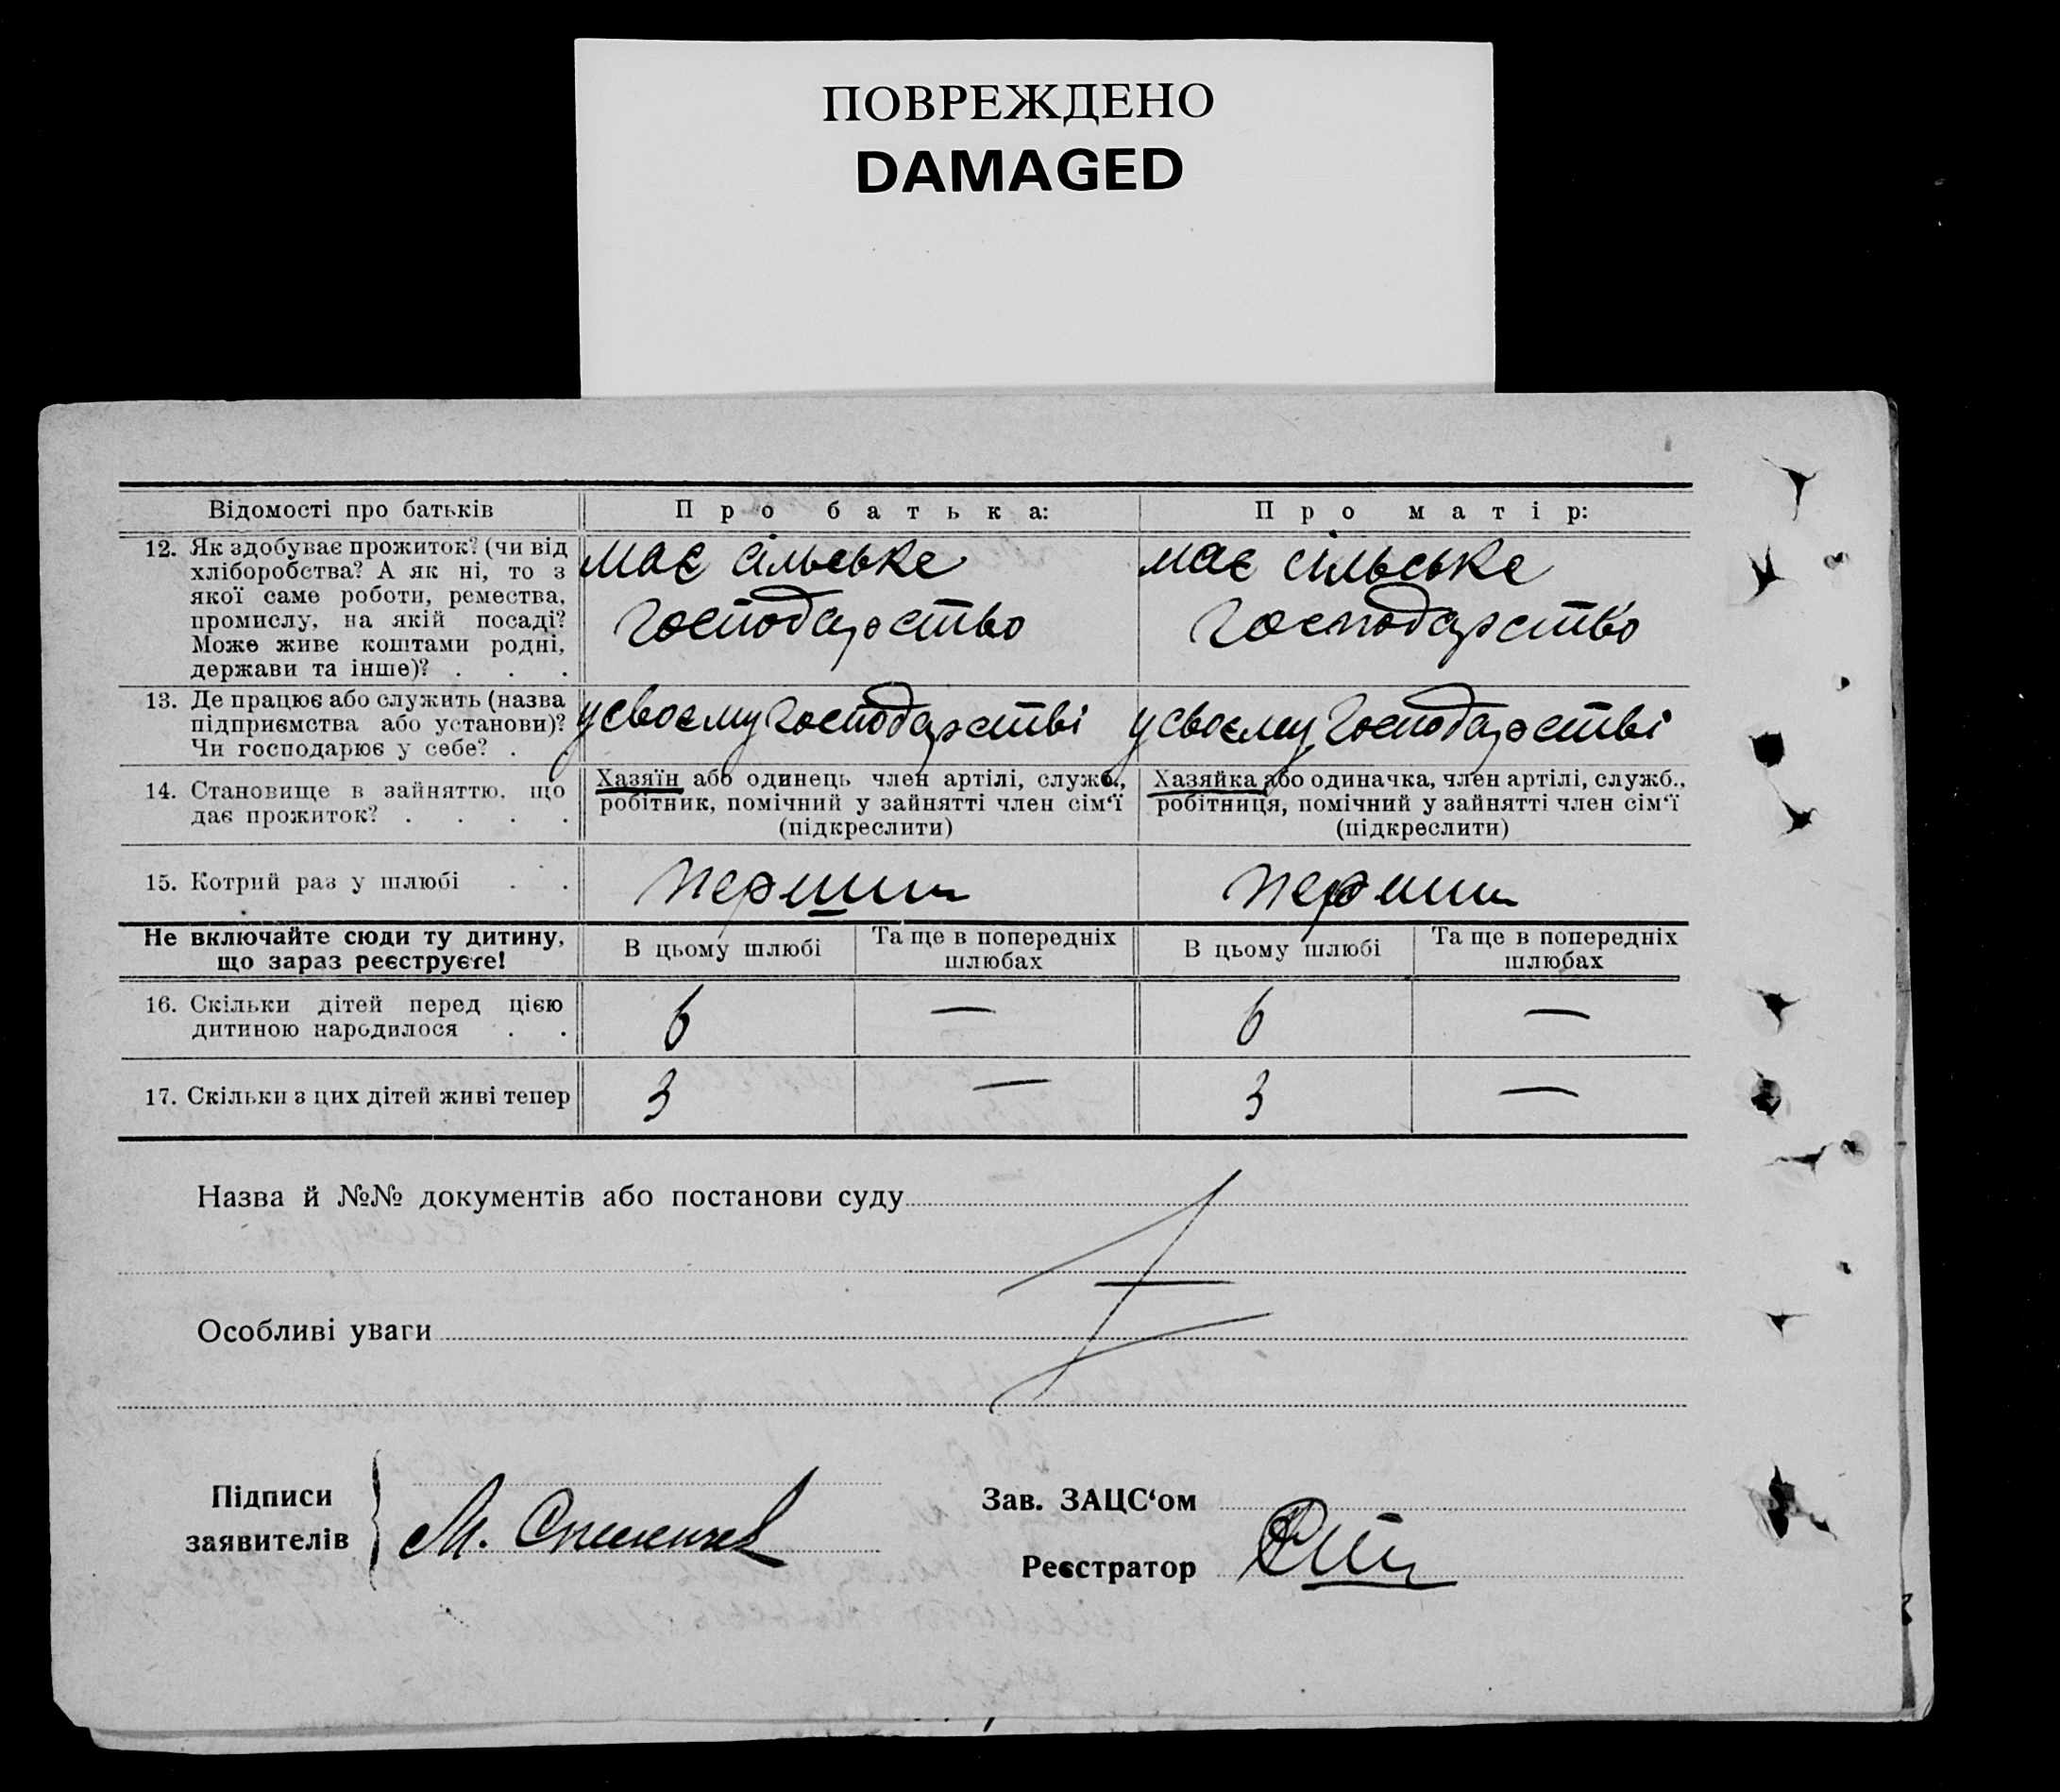 ПОВРЕЖДЕНО
DAMAGED
Відомості про батьків
Про батька:
Про матір:
12. Як здобуває прожиток? (чи від
хліборобства? А як ні, то з
якої саме роботи, ремества,
промислу, на якій посаді?
Може живе коштами родні,
держави та інше)? . . .
має сільське
господарство
має сільське
господарство
13. Де працює або служить (назва
підприємства або установи)?
Чи господарює у себе? . .
у своєму господарстві
у своєму господарстві
14. Становище в зайняттю, що
дає прожиток? . . . .
Хазяїн або одинець член артілі, служб.,
робітник, помічний у зайнятті член сім‘ї
(підкреслити)
Хазяйка або одиначка, член артілі, служб.,
робітниця, помічний у зайнятті член сім‘ї
(підкреслити)
15. Котрий раз у шлюбі . .
перший
перший
Не включайте сюди ту дитину,
що зараз реєструєте!
В цьому шлюбі
Та ще в попередніх
шлюбах
В цьому шлюбі
Та ще в попередніх
шлюбах
16. Скільки дітей перед цією
дитиною народилося . .
6 — 6 —
17. Скільки з цих дітей живі тепер
3 — 3 —
Назва й №№ документів або постанови суду
Особливі уваги
Підписи
заявителів
М.
Зав. ЗАЦС‘ом
Реєстратор